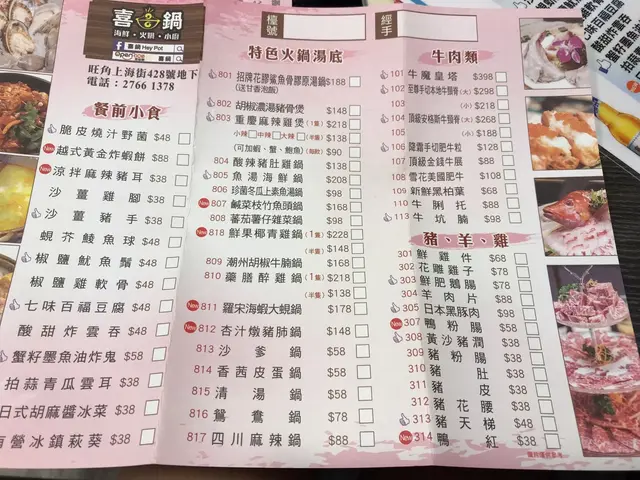 喜鍋
海鮮·火鍋·小廚
喜鍋 Hey Pot
OpenRice 喜鍋
旺角上海街428號地下
電話：2766 1378
餐前小食
脆皮燒汁野菌 $48
New 越式黃金炸蝦餅 $88
New 涼拌麻辣豬耳 $38
沙薑雞腳 $38
沙薑豬手 $38
蜆芥鯪魚球 $48
椒鹽魷魚鬚 $48
椒鹽雞軟骨 $48
七味百福豆腐 $48
酸甜炸雲吞 $48
蟹籽墨魚油炸鬼 $58
拍蒜青瓜雲耳 $38
日式胡麻醬冰菜 $38
有營冰鎮萩葵 $38
檯號
特色火鍋湯底
801 招牌花膠鯊魚骨膠原湯鍋 $188
(送甘香泡飯)
802 胡椒濃湯豬骨煲 $148
803 重慶麻辣雞煲 (1隻) $218
小辣 中辣 大辣 (半隻) $138
(可加蝦、蟹、鮑魚) (每款) $90
804 酸辣豬肚雞鍋 $138
805 魚湯海鮮鍋 $208
806 珍菌冬瓜上素魚湯鍋 $98
New 807 鹹菜枝竹魚頭鍋 $168
808 蕃茄薯仔雜菜鍋 $98
New 818 鮮果椰青雞鍋 (1隻) $228
(半隻) $148
809 潮州胡椒牛腩鍋 $168
810 藥膳醉雞鍋 (1隻) $218
(半隻) $138
New 811 羅宋海蝦大蜆鍋 $178
New 812 杏汁燉豬肺鍋 $148
813 沙爹鍋 $58
814 香茜皮蛋鍋 $58
815 清湯鍋 $58
816 鴛鴦鍋 $78
817 四川麻辣鍋 $88
經手
牛肉類
101 牛魔皇塔 $398
102 至尊手切本地牛頸脊 (大) $298
103 (小) $218
104 頂級安格斯牛頸脊 (大) $268
105 (小) $188
New 106 隆霄手切肥牛粒 $128
107 頂級金錢牛展 $88
108 雪花美國肥牛 $108
109 新鮮黑柏葉 $68
110 牛脷托 $88
113 牛坑腩 $98
豬、羊、雞
301 鮮雞件 $68
302 花雕雞子 $78
303 鮮肥鵝腸 $78
304 羊肉片 $88
305 日本黑豚肉 $98
New 307 鴨粉腸 $38
308 黃沙豬潤 $38
309 豬粉腸 $38
310 豬肚 $38
311 豬皮 $38
312 豬花腰 $38
313 豬天梯 $48
New 314 鴨紅 $38
圖片只供參考